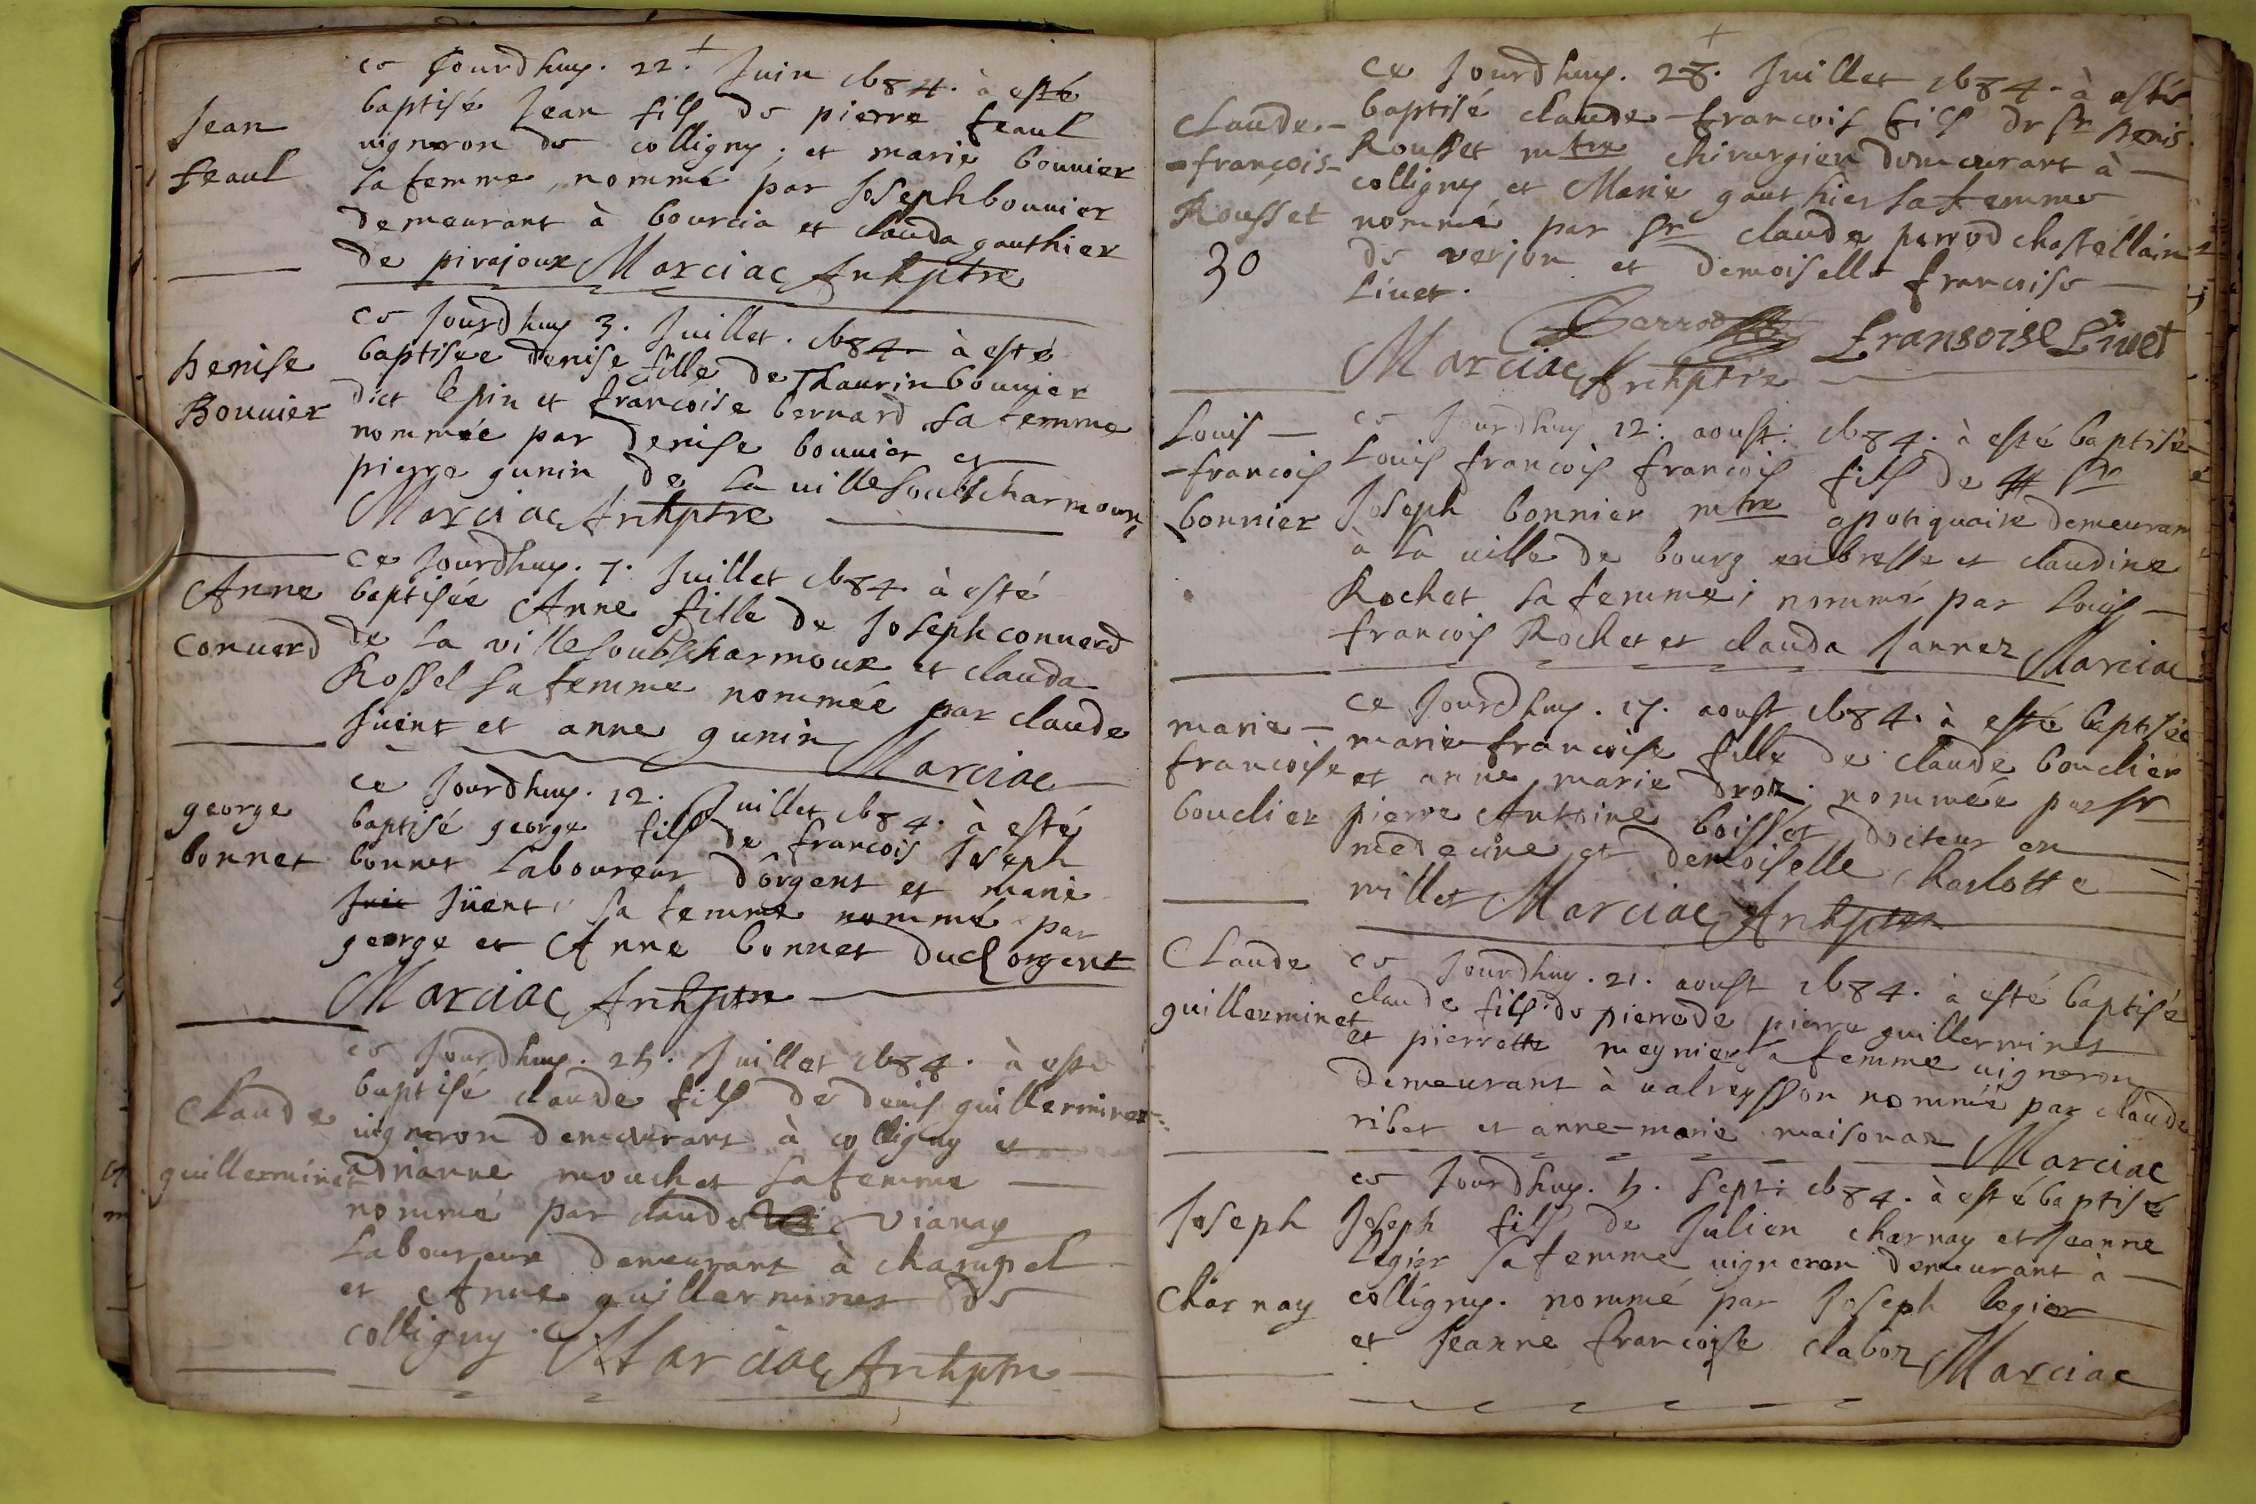 Jean
feaul
ce Jourdhuy. 22. Juin 1684. à esté
baptisé Jean fils de pierre feaul
vigneron de colligny; et marie bouuier
sa femme, nommé par Joseph bouuier
demeurant à bourcia et clauda gauthier
de pirajoux Marciac Archptre
Denise
Bouuier
ce Jourdhuy 3. Juillet. 1684 à esté
baptisée denise fille de Thaurin bouuier
dict lepin et francoise bernard sa femme
nommée par denise bouuier et
pierre gunin de la ville soubs charmoux
Marciac Archptre
Anne
conuerd
ce Jourdhuy. 7. Juillet 1684. à esté
baptisée Anne fille de Joseph conuerd
de la ville soubs charmoux et clauda
Rossel sa femme nommée par claude
Juent et anne gunin Marciac
george
bonnet
ce Jourdhuy. 12. Juillet 1684. à esté
baptisé george fils de francois Joseph
bonnet Laboureur dorgent et marie
Juent, sa femme nommé par
george et Anne bonnet dud orgent
Marciac Archptre
Claude
guillerminet
ce Jourdhuy. 25. Juillet 1684. à esté
baptisé claude fils de denis guillerminet
vigneron demeurant à colligny et
adrianne mouchet sa femme
nommé par claude Vianay
Laboureur demeurant à champel
et Anne guillerminet de
colligny. Marciac Archptre
Claude-
-françois-
Rousset
30
ce Jourdhuy. 28. Juillet 1684. à esté
baptisé claude-francois fils de sr Denis
Rousset mtre chirurgien demeurant à
colligny et Marie gauthier sa femme
nommé par sr claude perrod chastellain
de verjon et demoiselle francoise
Liuet.
Perrod Fransoise Liuet
Marciac Archptre
Louis
-francois
bonnier
ce Jourdhuy 12. aoust. 1684. à esté baptisé
Louis francois francois fils de sr
Joseph bonnier mtre apotiquaire demeurant
à la ville de bourg en bresse et claudine
Rochet sa femme; nommé par Louis
francois Rochet et clauda Jannez Marciac
marie-
francoise
bouclier
ce Jourdhuy. 17. aoust 1684. à esté baptisée
marie-francoise fille de claude bouclier
et anne marie droz; nommée par sr
pierre Antoine boisset docteur en
medecine et demoiselle charlotte
millet Marciac Archptre
Claude
guillerminet
ce Jourdhuy. 21. aoust 1684. à esté baptisé
claude fils de pierre de pierre guillerminet
et pierrette meynier sa femme vigneron
demeurant à valreysson nommé par claude
ribet et anne-marie maisonaz Marciac
Joseph
charnay
ce Jourdhuy. 5. Sept: 1684. à esté baptisé
Joseph fils de Julien charnay et Jeanne
legier sa femme vigneron demeurant à
colligny. nommé par Joseph legier
et Jeanne francoise claboz Marciac